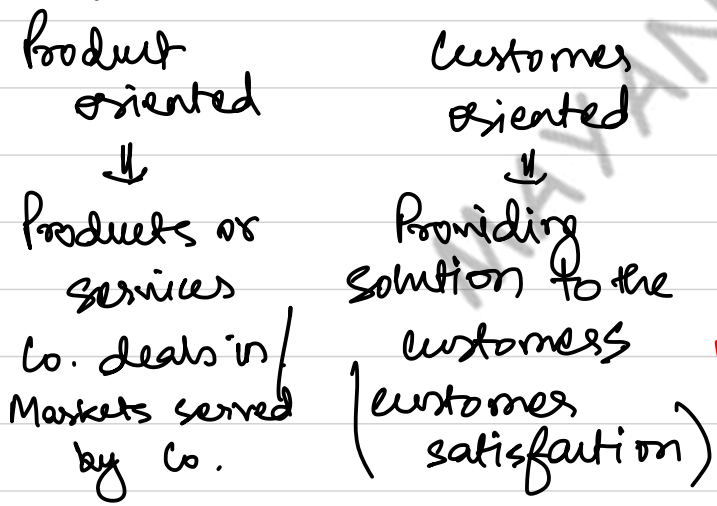 Product
oriented
⇓
Products or
services
Co. deals in /
Markets served
by Co.
Customer
oriented
⇓
Providing
solution to the
customers
(customer
satisfaction)
MAYAN